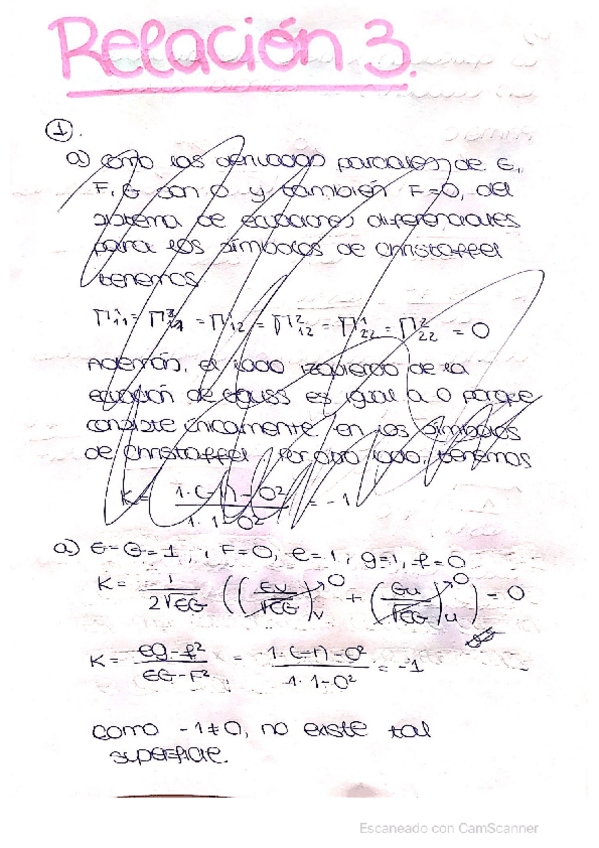 Relación 3.
①.
a) Como las derivadas parciales de E,
F, G son 0 y también F=0, del
sistema de ecuaciones diferenciales
para los símbolos de Christoffel
tenemos
= 0
Además, el lado izquierdo de la
ecuación de Gauss es igual a 0 porque
consiste únicamente en los símbolos
de Christoffel. Por otro lado, tenemos
K = 1·(-1)-0² / 1·1-0² = -1
a) E=G=1, , F=0, e=1, g=1, f=0
K = 1 / 2√EG ((Ev / √EG)v →0 + (Gu / √EG)u →0) = 0
K = eg-f² / EG-F² = -1·(-1)-0² / 1·1-0² = -1
Como -1≠0, no existe tal
superficie.
Escaneado con CamScanner